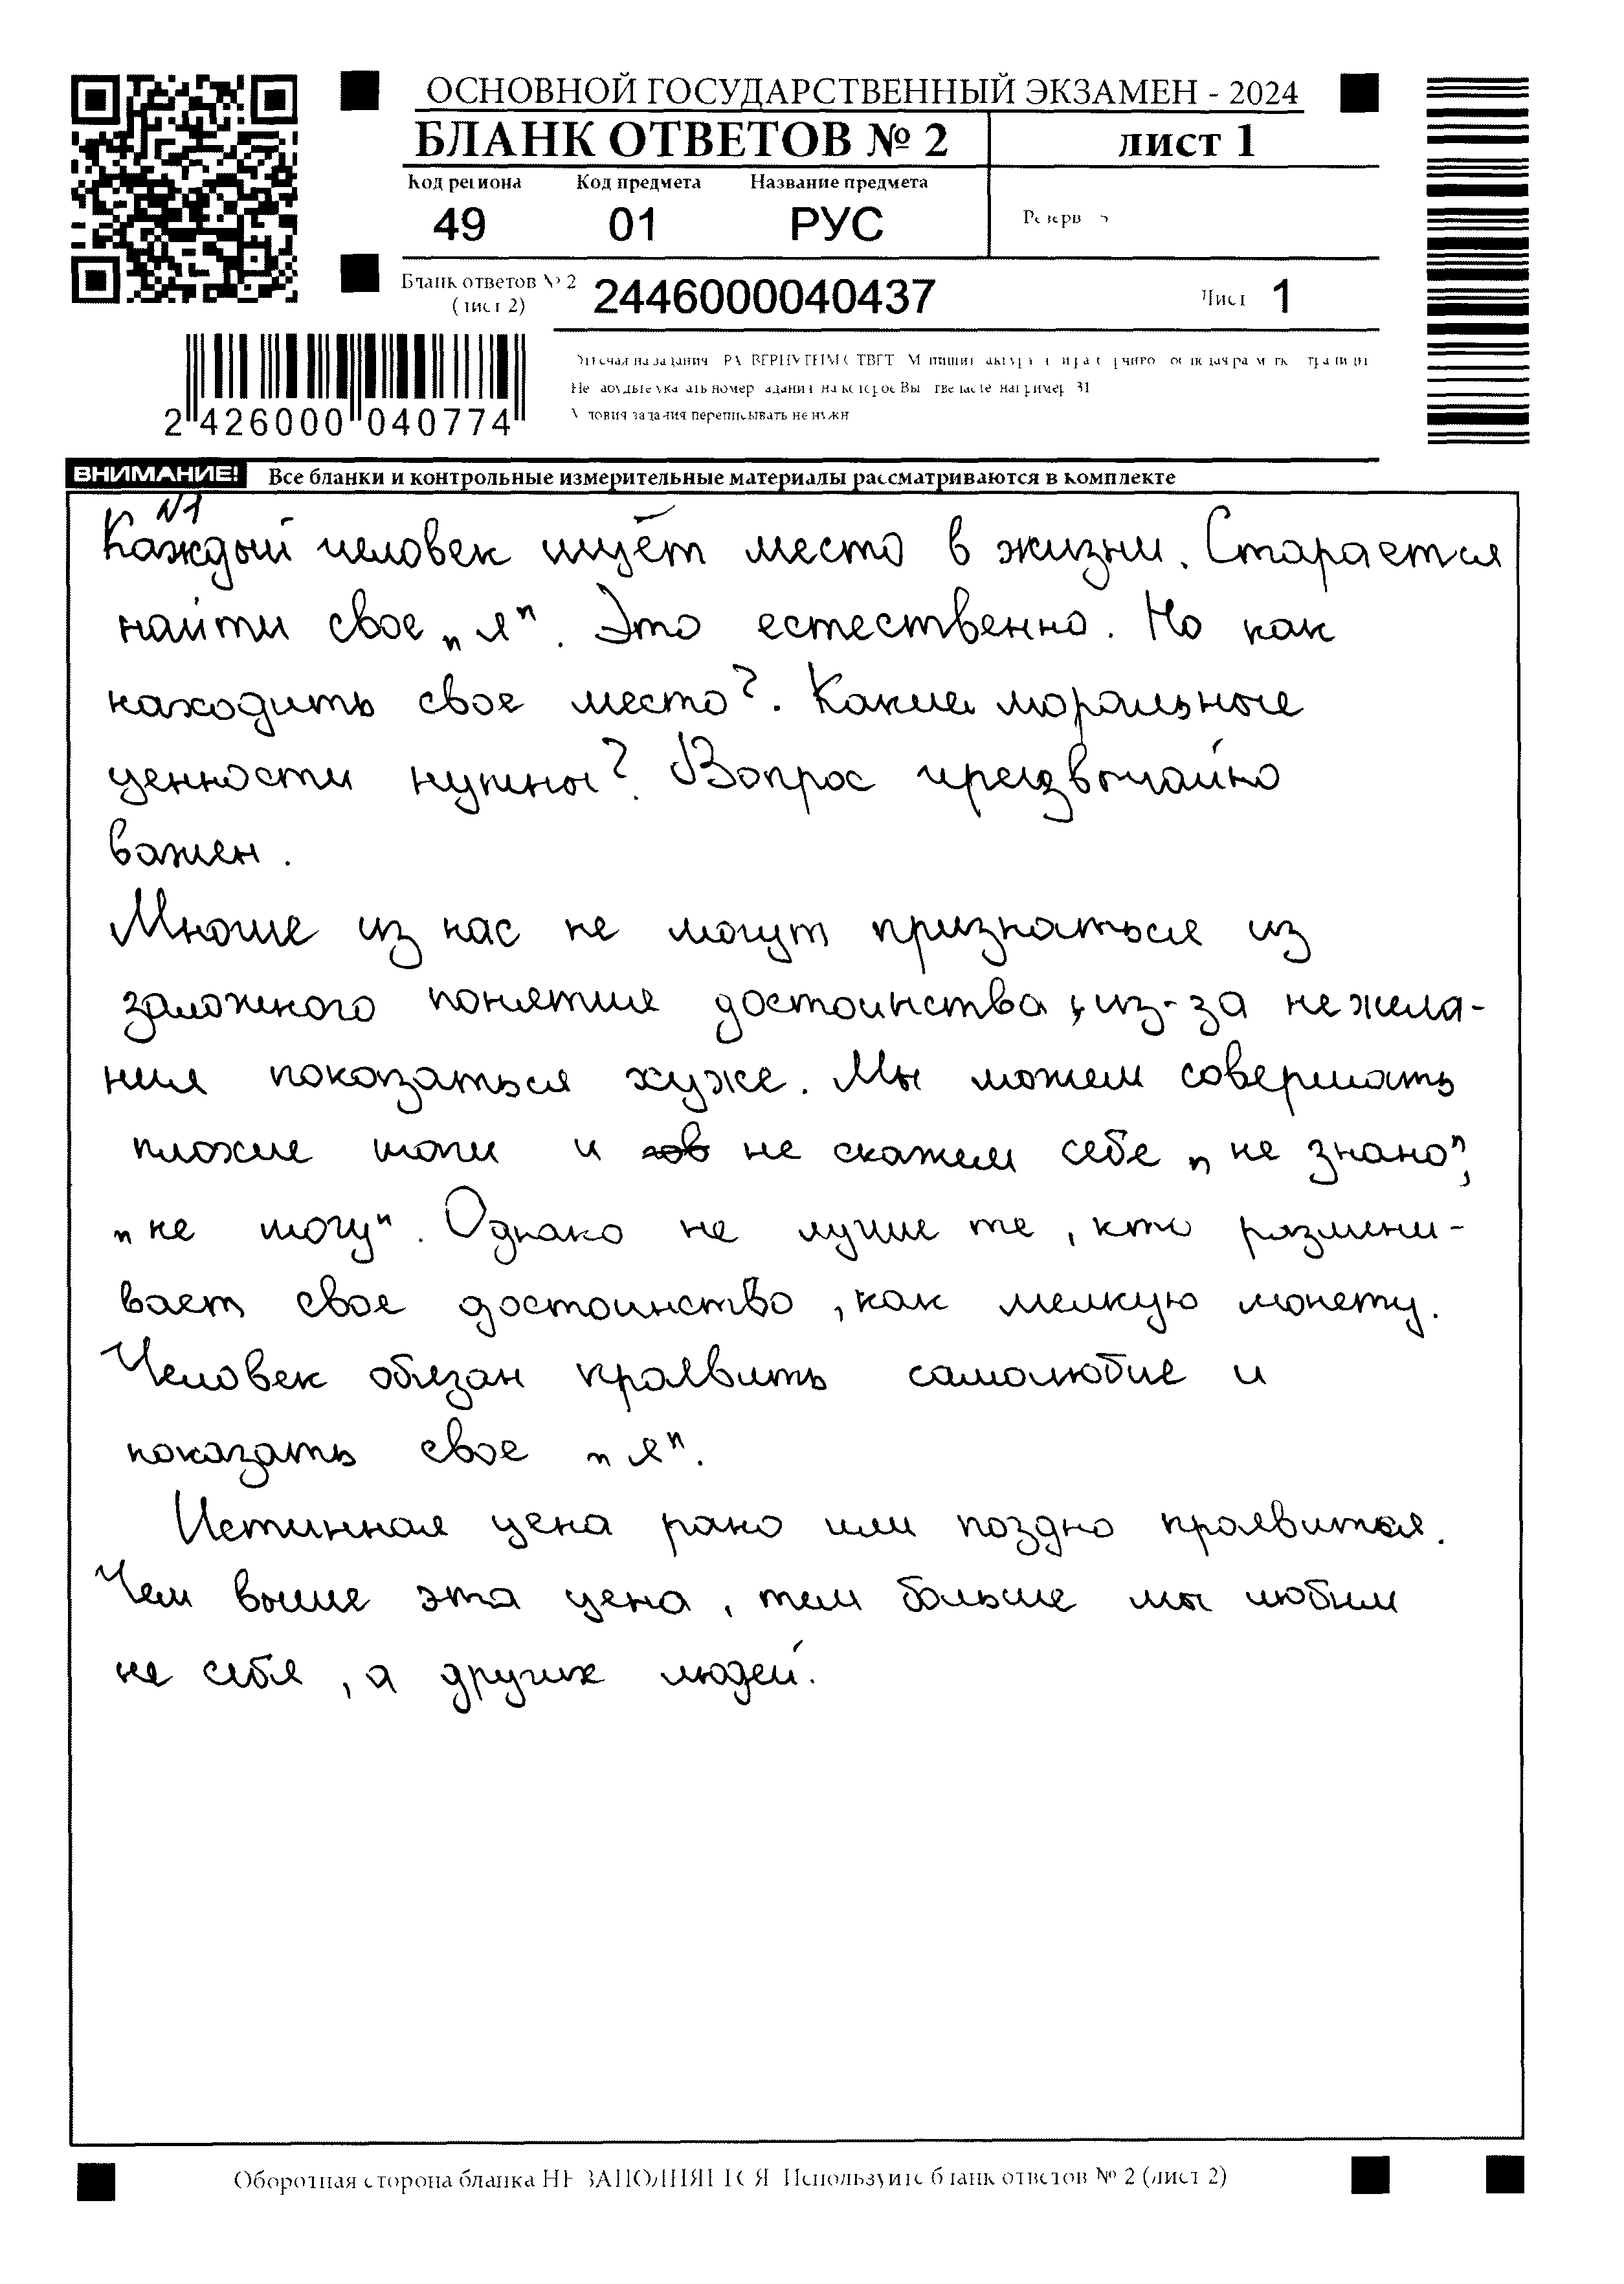 ОСНОВНОЙ ГОСУДАРСТВЕННЫЙ ЭКЗАМЕН - 2024
БЛАНК ОТВЕТОВ № 2 лист 1
Код региона Код предмета Название предмета
49 01 РУС
Резерв
Бланк ответов № 2
(лист 2) 2446000040437 Лист 1
2 426000 040774
ВНИМАНИЕ! Все бланки и контрольные измерительные материалы рассматриваются в комплекте
№1
Каждый человек ищёт место в жизни. Старается
найти свое „я". Это естественно. Но как
находить свое место?. Какие моральные
ценности нужны?. Вопрос чрезвычайно
важен.
Многие из нас не могут признаться из
заложного понятие достоинства, из-за нежела-
ния показаться хуже. Мы можем совершать
плохие шаги и не скажем себе „не знаю",
„не могу". Однако не лучше те, кто размени-
вает свое достоинство, как мелкую монету.
Человек обязан проявить самолюбие и
показать свое „я".
Истинная цена рано или поздно проявиться.
Чем выше эта цена, тем больше мы любим
не себя, а других людей.
Оборотная сторона бланка НЕ ЗАПОЛНЯЕТСЯ Используйте бланк ответов № 2 (лист 2)